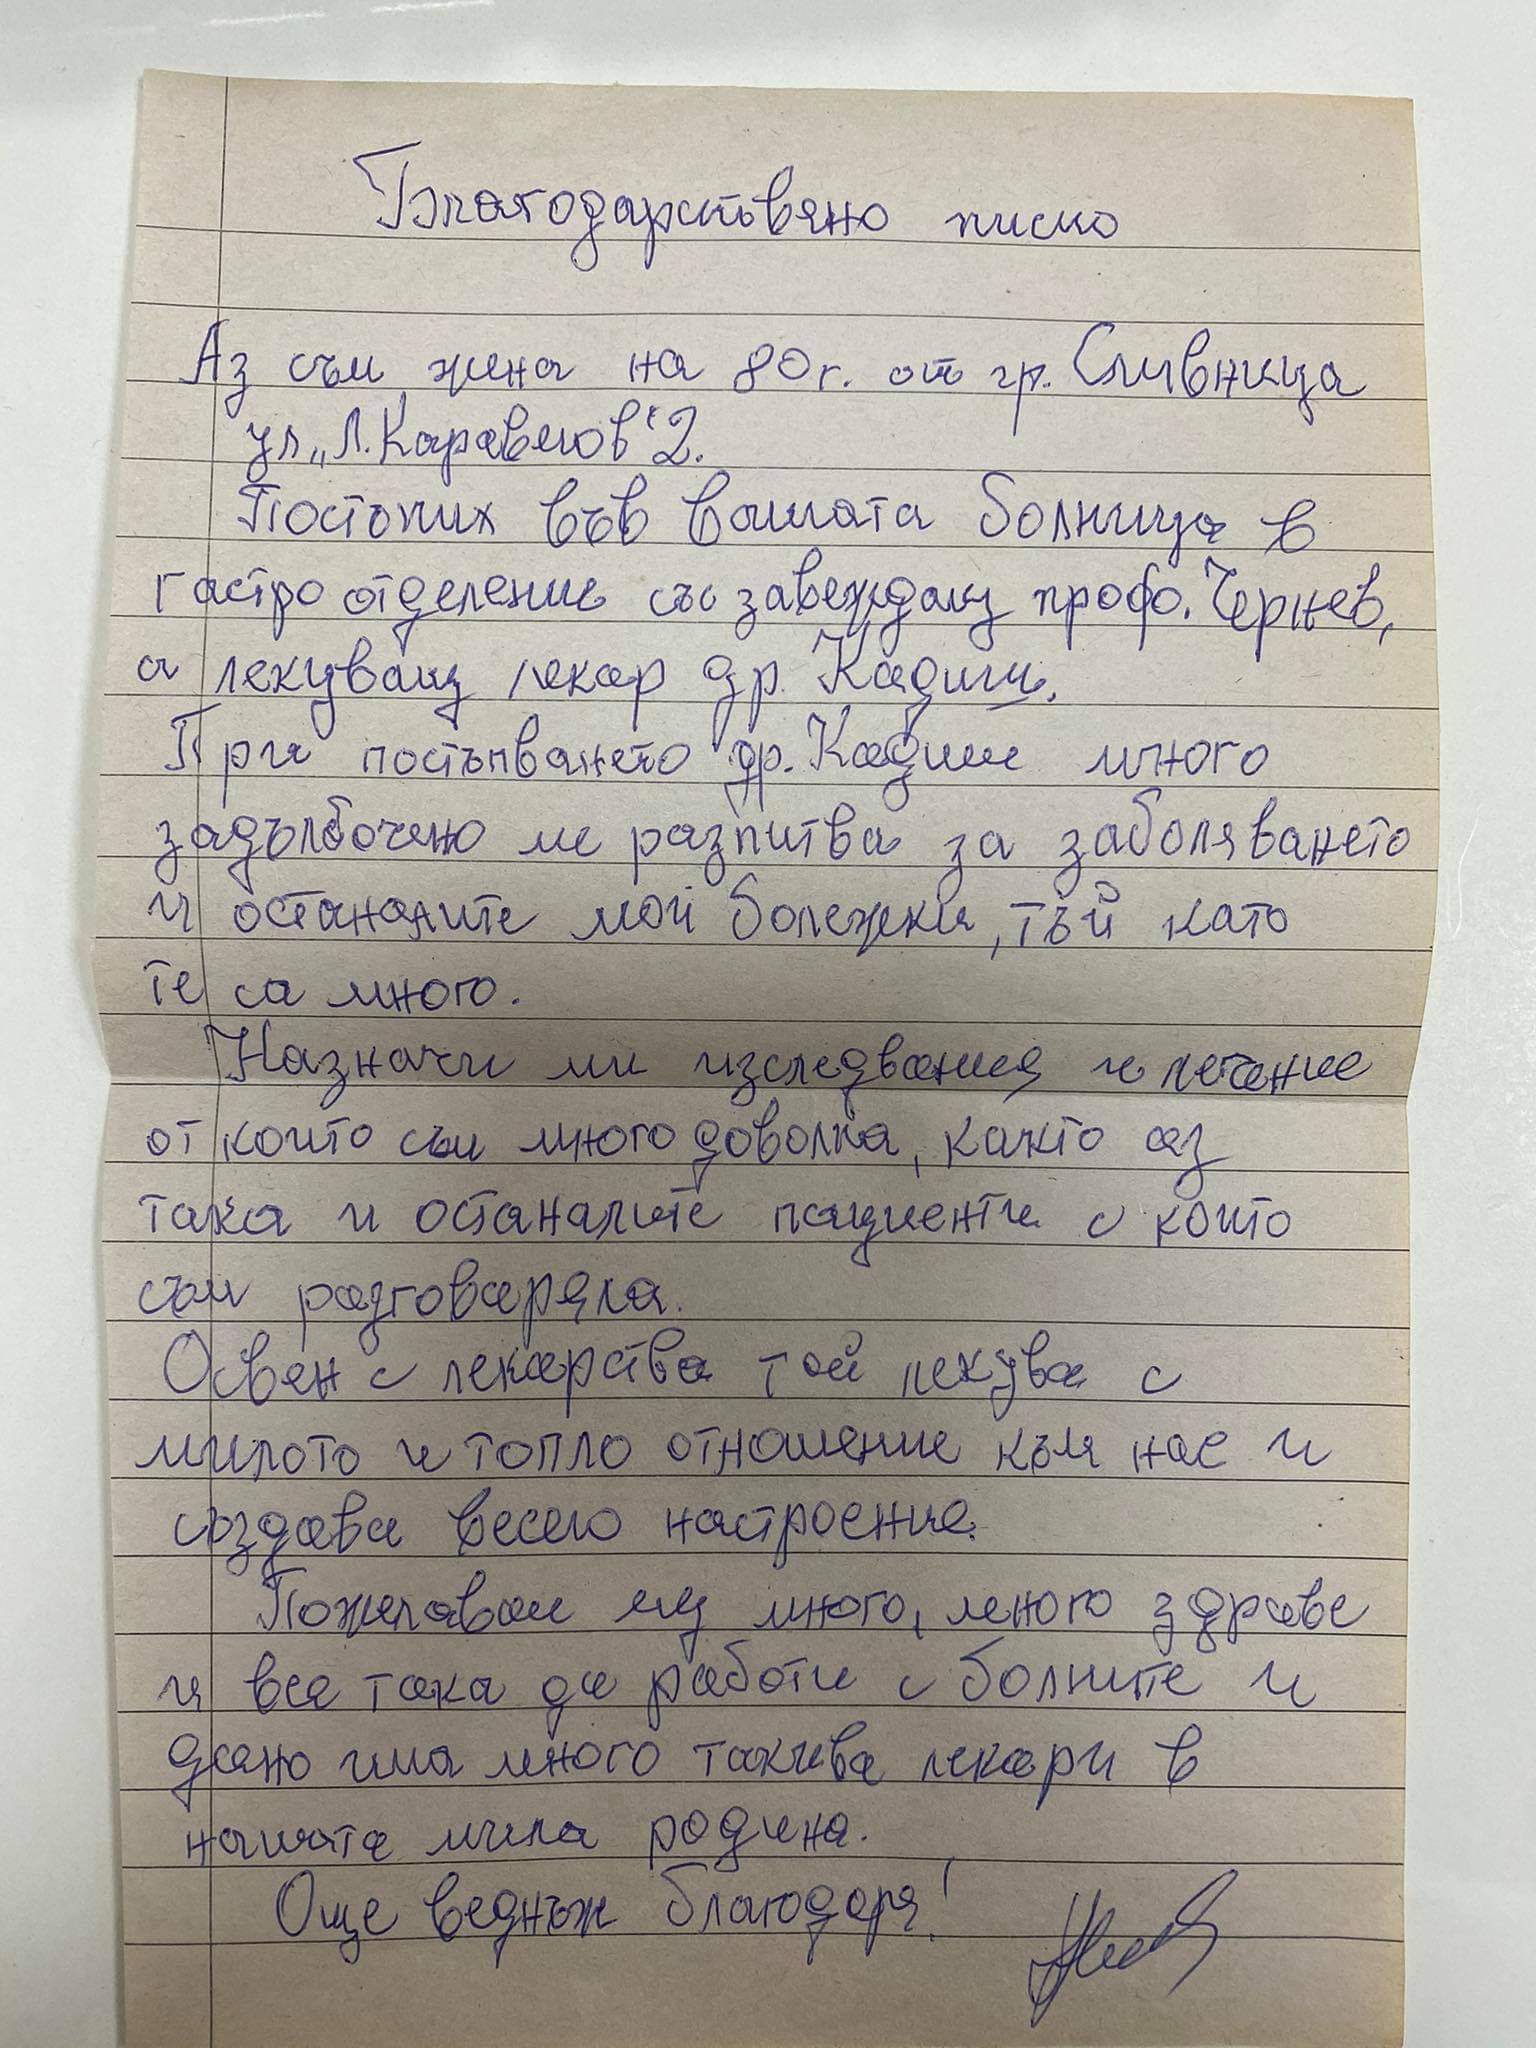 Благодарствено писмо
Аз съм жена на 80 г. от гр. Сливница
ул „Л. Каравелов“ 2.
Постъпих във вашата болница в
гастро отделение със завеждащ профо. Чернев,
а лекуващ лекар др. Кадиш.
При постъпването др. Кадиш много
задълбочено ме разпитва за заболяването
и останалите мои болежки, тъй като
те са много.
Назначи ми изследвания и лечение
от които съм много доволна, както аз
така и останалите пациенти с които
съм разговаряла.
Освен с лекарства той лекува с
милото и топло отношение към нас и
създава весело настроение.
Пожелавам му много, много здраве
и все така да работи с болните и
дано има много такива лекари в
нашата мила родина.
Още веднъж благодаря!